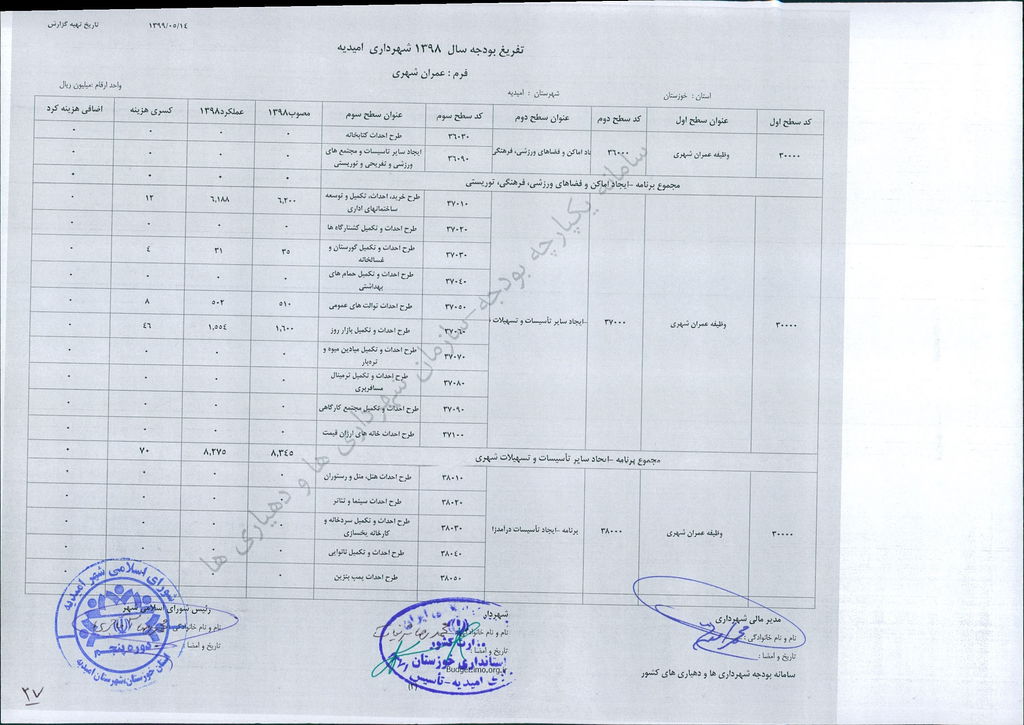 تاریخ تهیه گزارش ۱۳۹۹/۰۵/۱٤
تفریغ بودجه سال ۱۳۹۸ شهرداری امیدیه
فرم : عمران شهری
استان : خوزستان شهرستان : امیدیه واحد ارقام :میلیون ریال
کد سطح اول عنوان سطح اول کد سطح دوم عنوان سطح دوم کد سطح سوم عنوان سطح سوم مصوب۱۳۹۸ عملکرد۱۳۹۸ کسری هزینه اضافی هزینه کرد
۳۰۰۰۰ وظیفه عمران شهری ۳٦۰۰۰ اماکن و فضاهای ورزشی، فرهنگی
۳٦۰۳۰ طرح احداث کتابخانه ۰ ۰ ۰ ۰
۳٦۰۹۰ ایجاد سایر تاسیسات و مجتمع های ۰ ۰ ۰ ۰
ورزشی و تفریحی و توریستی
مجموع برنامه -ایجاد اماکن و فضاهای ورزشی، فرهنگی، توریستی ۰ ۰ ۰ ۰
۳۰۰۰۰ وظیفه عمران شهری ۳۷۰۰۰ -ایجاد سایر تأسیسات و تسهیلات
۳۷۰۱۰ طرح خرید، احداث، تکمیل و توسعه ٦,۲۰۰ ٦,۱۸۸ ۱۲ ۰
ساختمانهای اداری
۳۷۰۲۰ طرح احداث و تکمیل کشتارگاه ها ۰ ۰ ۰ ۰
۳۷۰۳۰ طرح احداث و تکمیل گورستان و ۳۵ ۳۱ ٤ ۰
غسالخانه
۳۷۰٤۰ طرح احداث و تکمیل حمام های ۰ ۰ ۰ ۰
بهداشتی
۳۷۰۵۰ طرح احداث توالت های عمومی ۵۱۰ ۵۰۲ ۸ ۰
۳۷۰٦۰ طرح احداث و تکمیل بازار روز ۱,٦۰۰ ۱,۵۵٤ ٤٦ ۰
۳۷۰۷۰ طرح احداث و تکمیل میادین میوه و ۰ ۰ ۰ ۰
تره‌بار
۳۷۰۸۰ طرح احداث و تکمیل ترمینال ۰ ۰ ۰ ۰
مسافربری
۳۷۰۹۰ طرح احداث و تکمیل مجتمع کارگاهی ۰ ۰ ۰ ۰
۳۷۱۰۰ طرح احداث خانه های ارزان قیمت ۰ ۰ ۰ ۰
مجموع برنامه -ایجاد سایر تأسیسات و تسهیلات شهری ۸,۳٤۵ ۸,۲۷۵ ۷۰ ۰
۳۰۰۰۰ وظیفه عمران شهری ۳۸۰۰۰ برنامه -ایجاد تأسیسات درآمدزا
۳۸۰۱۰ طرح احداث هتل، متل و رستوران ۰ ۰ ۰ ۰
۳۸۰۲۰ طرح احداث سینما و تئاتر ۰ ۰ ۰ ۰
۳۸۰۳۰ طرح احداث و تکمیل سردخانه و ۰ ۰ ۰ ۰
کارخانه یخسازی
۳۸۰٤۰ طرح احداث و تکمیل نانوایی ۰ ۰ ۰ ۰
۳۸۰۵۰ طرح احداث پمپ بنزین ۰ ۰ ۰ ۰
سامانه یکپارچه بودجه-سازمان شهرداری ها و دهیاری ها
مدیر مالی شهرداری شهردار رئیس شورای اسلامی شهر
نام و نام خانوادگی : نام و نام خانوادگی نام و نام خانوادگی
تاریخ و امضا : تاریخ و امضا : تاریخ و امضا :
سامانه بودجه شهرداری ها و دهیاری های کشور
Budget.imo.org.ir
وزارت کشور
استانداری خوزستان
امیدیه-تأسیس
شورای اسلامی شهر امیدیه
دوره پنجم
استان خوزستان،شهرستان امیدیه
۲۷